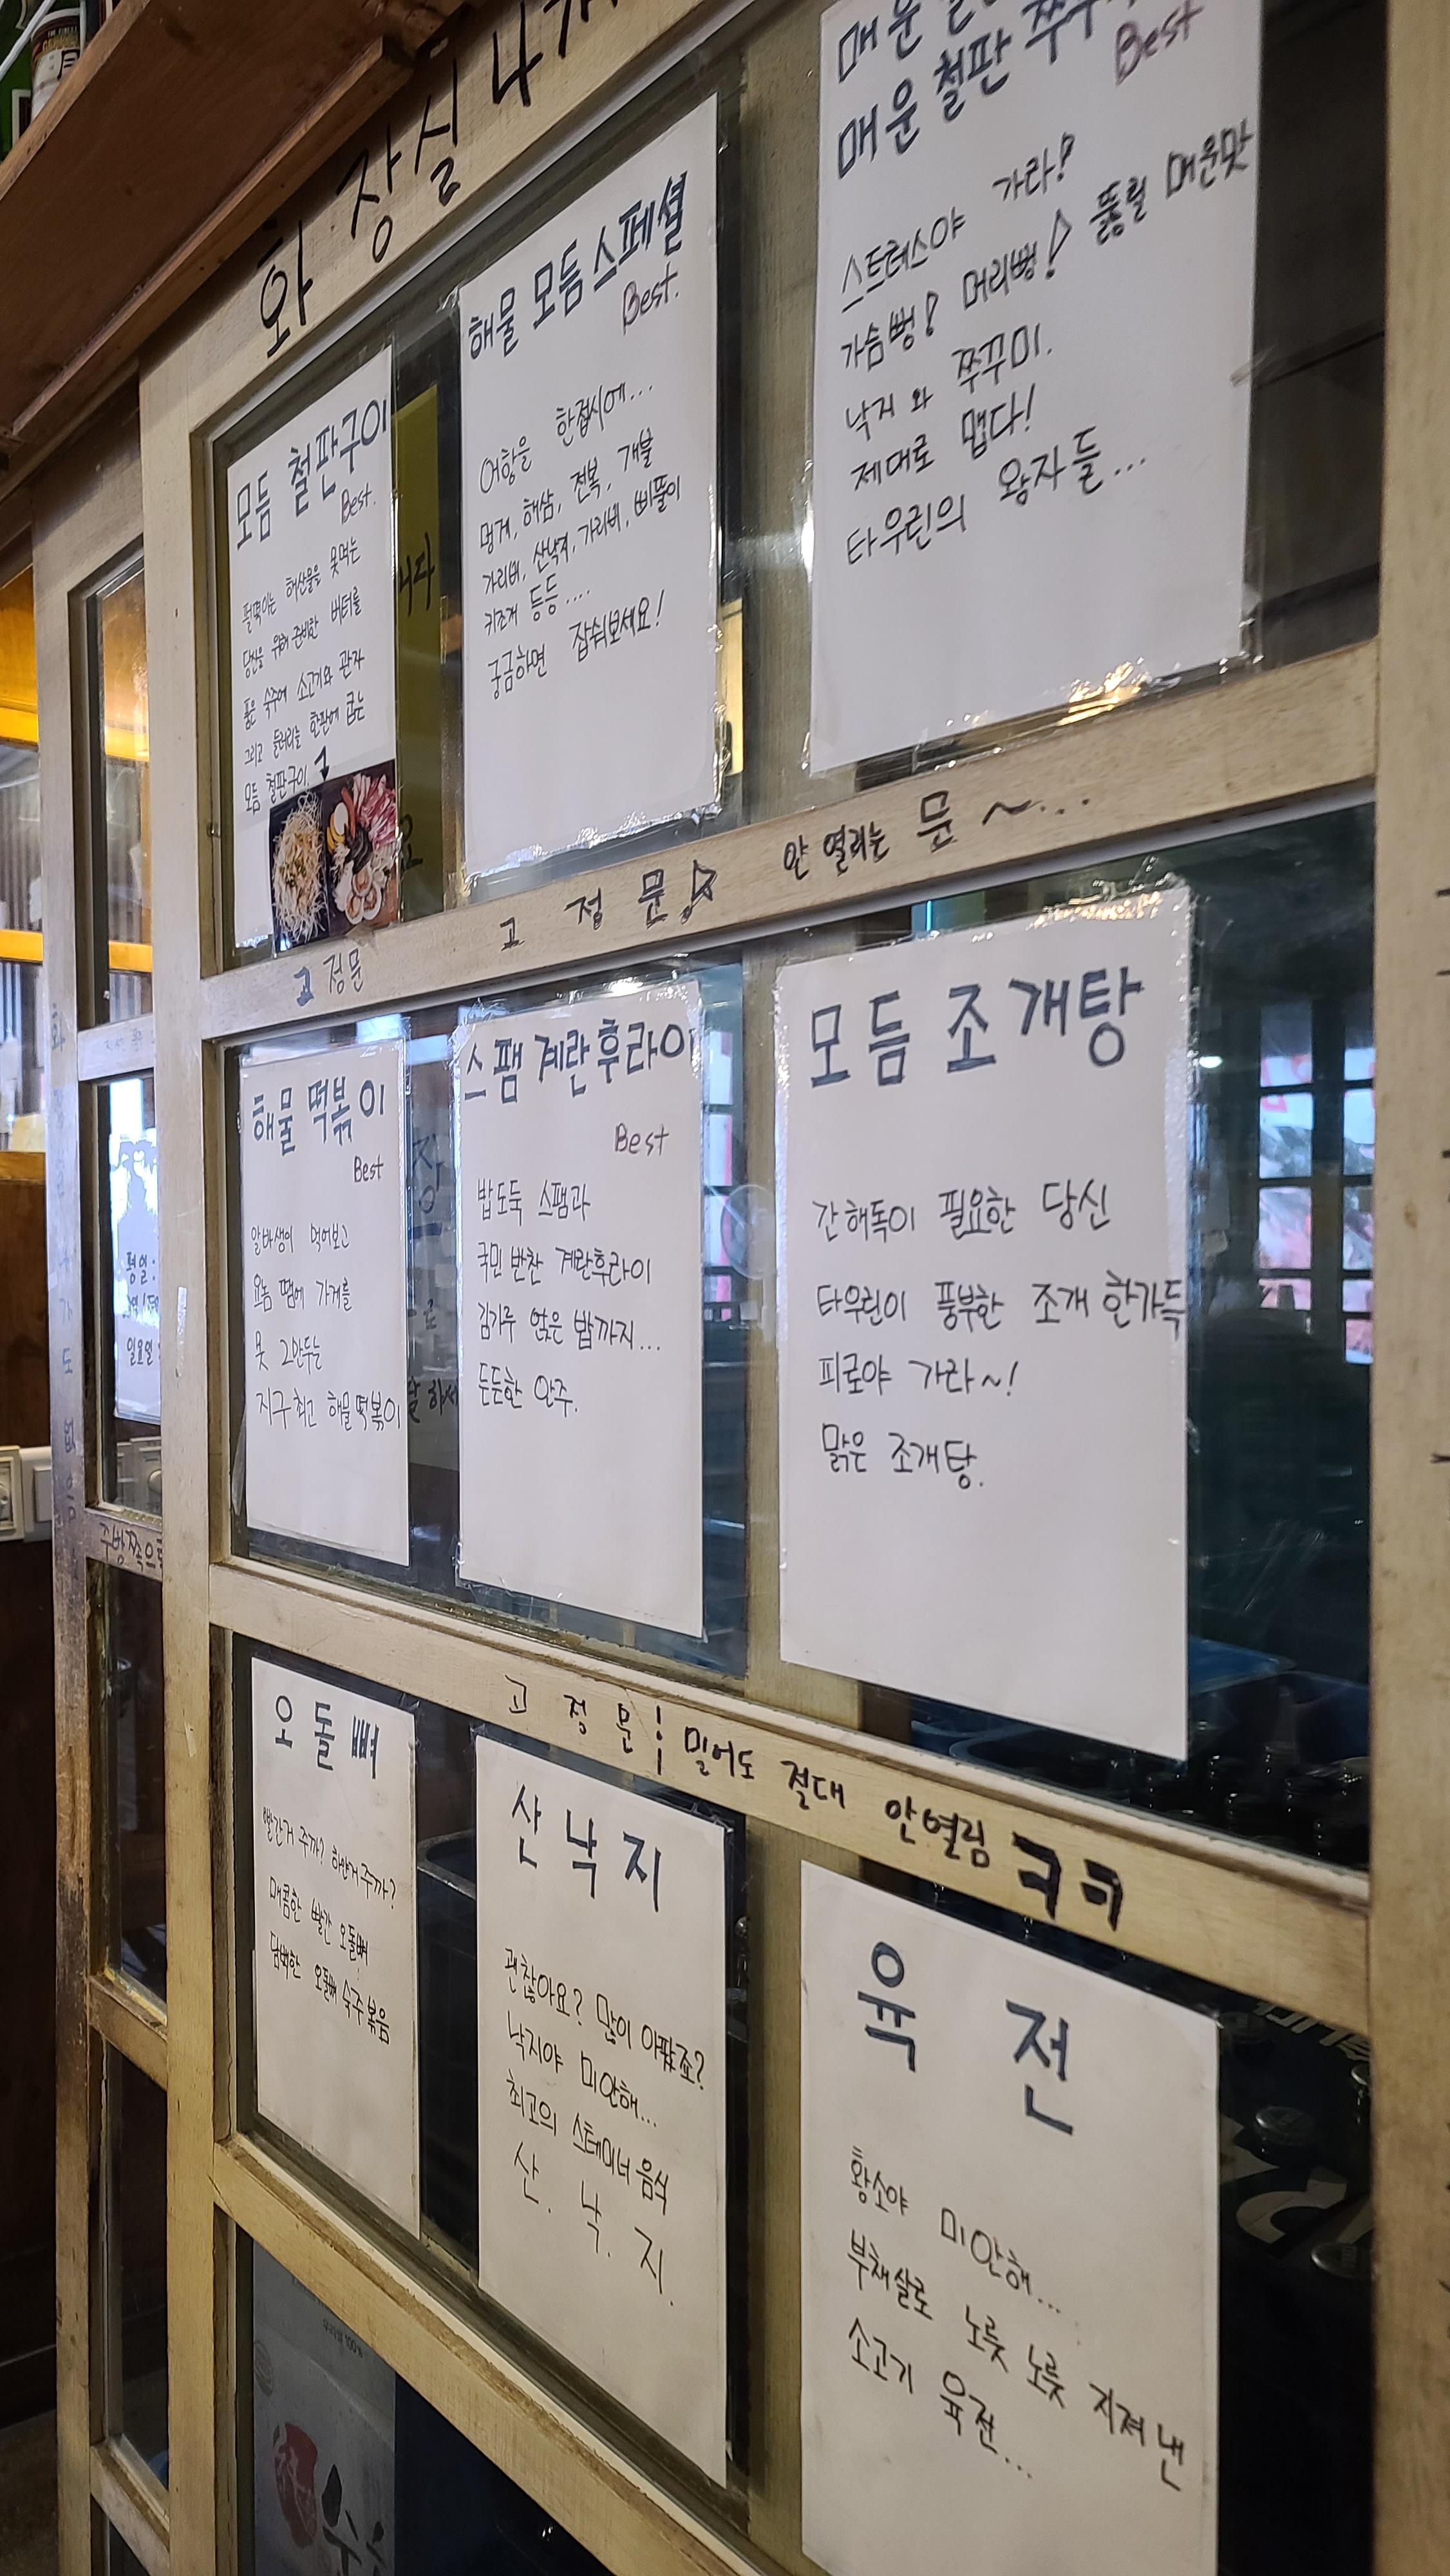 화장실
모듬 철판구이
Best.
펄떡이는 해산물을 못먹는
당신을 위해 준비한 버터를
품은 숙주에 소고기와 관자
그리고 들러리는 한판에 굽는
모듬 철판구이.
해물 모듬 스페셜
Best.
어항을 한접시에...
멍게, 해삼, 전복, 개불
가리비, 산낙지, 가리비, 삐뚤이
키조개 등등....
궁금하면 잡숴보세요!
매운
매운 철판
Best
스트레스야 가라!
가슴뻥! 머리뻥! 뚫릴 매운맛
낙지 와 쭈꾸미.
제대로 맵다!
타우린의 왕자들...
고정문
고정문! 안 열리는 문~...
해물 떡볶이
Best
알바생이 먹어보고
요놈 땜에 가게를
못 그만두는
지구최고 해물떡볶이
스팸 계란후라이
Best
밥도둑 스팸과
국민반찬 계란후라이
김가루 얹은 밥까지...
든든한 안주.
모듬 조개탕
간해독이 필요한 당신
타우린이 풍부한 조개 한가득
피로야 가라~!
맑은 조개탕.
평일:
일요일
주방쪽으로
고정문! 밀어도 절대 안열림 ㅋㅋ
오돌뼈
빨간거 주까? 하얀거 주까?
매콤한 빨간 오돌뼈
담백한 오돌뼈 숙주볶음
산낙지
괜찮아요? 많이 아팠죠?
낙지야 미안해...
최고의 스테미너 음식
산. 낙. 지.
육전
황소야 미안해...
부채살로 노릇 노릇 지져 낸
소고기 육전...